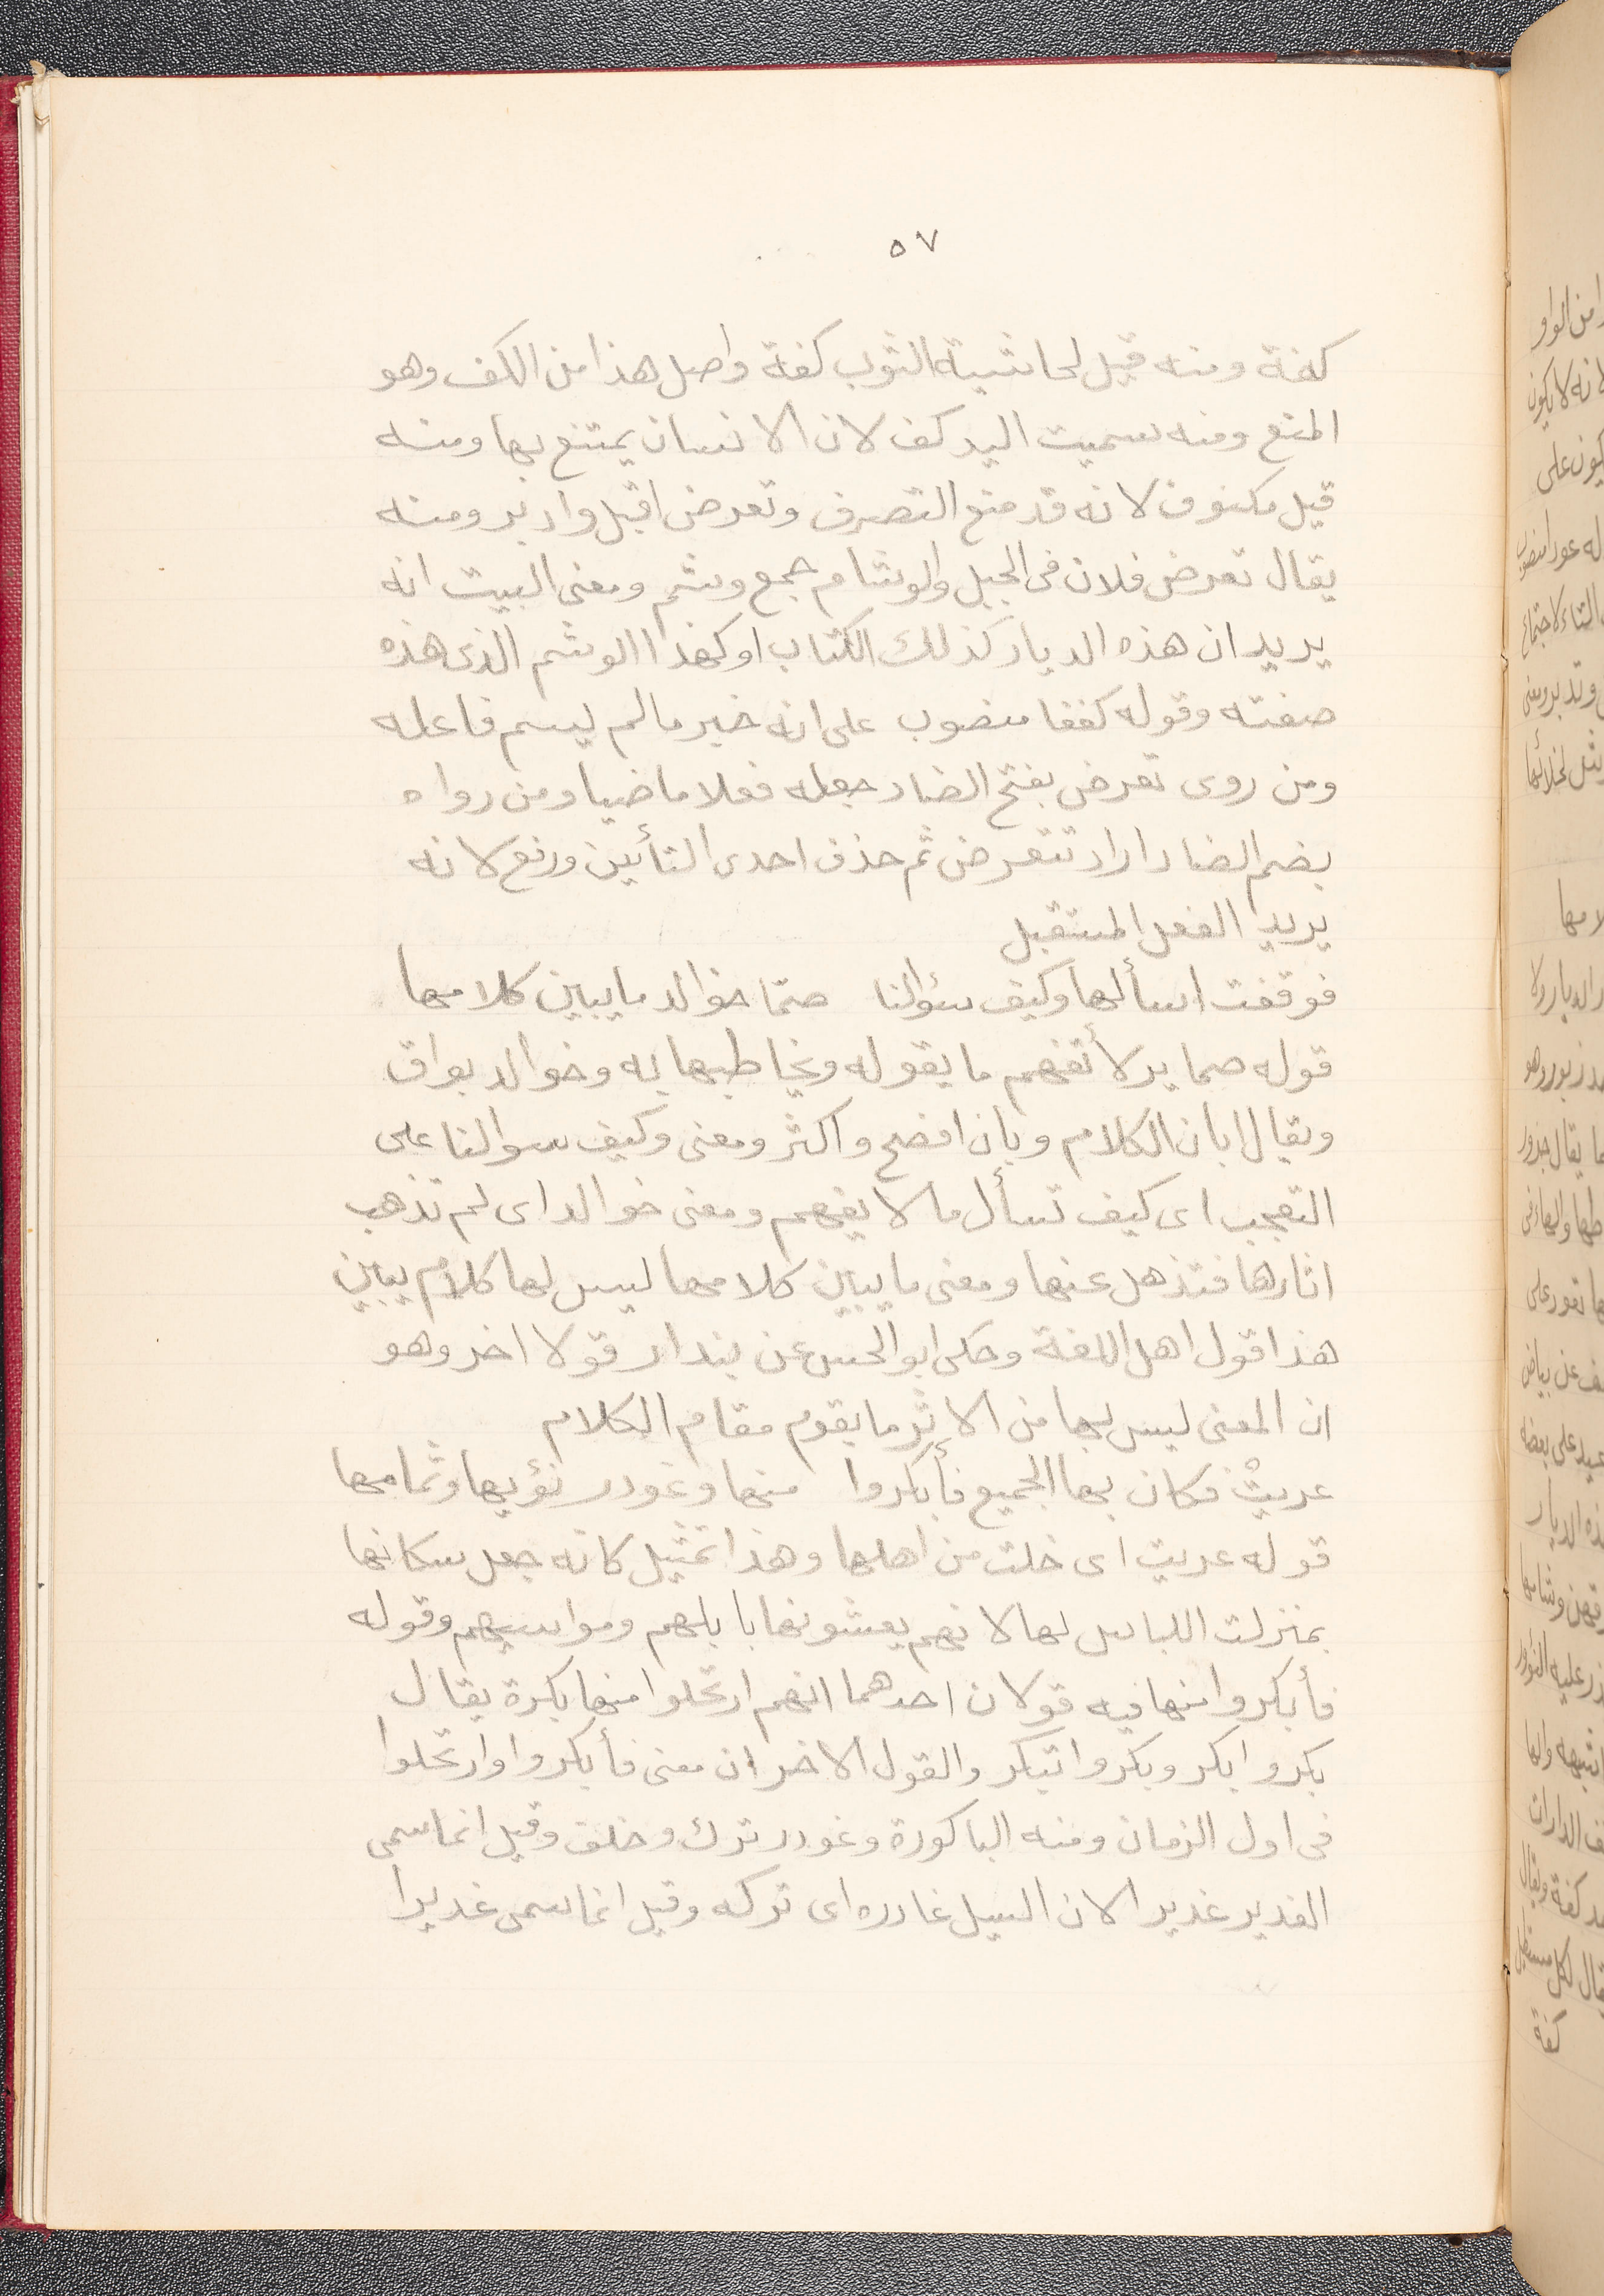 ٥٧
كفة ومنه قيل لحاشية الثوب كفة واصل هذا من الكف وهو
المنع ومنه سميت اليد كف لان الانسان يمتنع بها ومنه
قيل مكفوف لانه قد منع التصرف وتعرض اقبل وادبر ومنه
يقال تعرض فلان فى الجبل والوشام جمع وشم ومعنى البيت انه
يريد ان هذه الديار كذلك الكتاب او كهذا الوشم الذى هذه
صفته وقوله كففا منصوب على انه خبر مالم يسم فاعله
ومن روى تعرض بفتح الضاد جعله فعلا ماضيا ومن رواه
بضم الضاد اراد تتعرض ثم حذف احدى التأيين ورفع لانه
يريد الفعل المستقبل
فوقفت اسألها وكيف سؤالنا صمّا خوالد مايبين كلامها
قوله صما يد لأتفهم مايقوله ويخاطبها به وخوالد بواق
ويقال ابان الكلام وبان افصح واكثر ومعنى وكيف سوالنا على
التعجب اى كيف تسأل مالا يفهم ومعنى خوالد اى لم تذهب
اثارها فتذهل عنها ومعنى مايبين كلامها ليس لها كلام يبين
هذا قول اهل اللغة وحكى ابو الحسن عن بندار قولا اخر وهو
ان المعنى ليس لها من الاثر مايقوم مقام الكلام
عريتْ فكان بها الجميع فأبكروا منها وغودر نؤيها وثمامها
قوله عريت اى خلت من اهلها وهذا تمثيل كانه جعل سكانها
بمنزلت اللباس لها لانهم يعشونها بابلهم ومواسيهم وقوله
فأبكروا منها فيه قولان احدهما انهم ارتحلوا منها بكرة يقال
بكر وابكر وبكر وابتكر والقول الاخر ان معنى فأبكروا وارتحلوا
فى اول الزمان ومنه الباكورة وغودر ترك وخلف وقيل انما سمى
الغدير غديرا لان السيل غادره اى تركه وقيل انما سمى غديرا